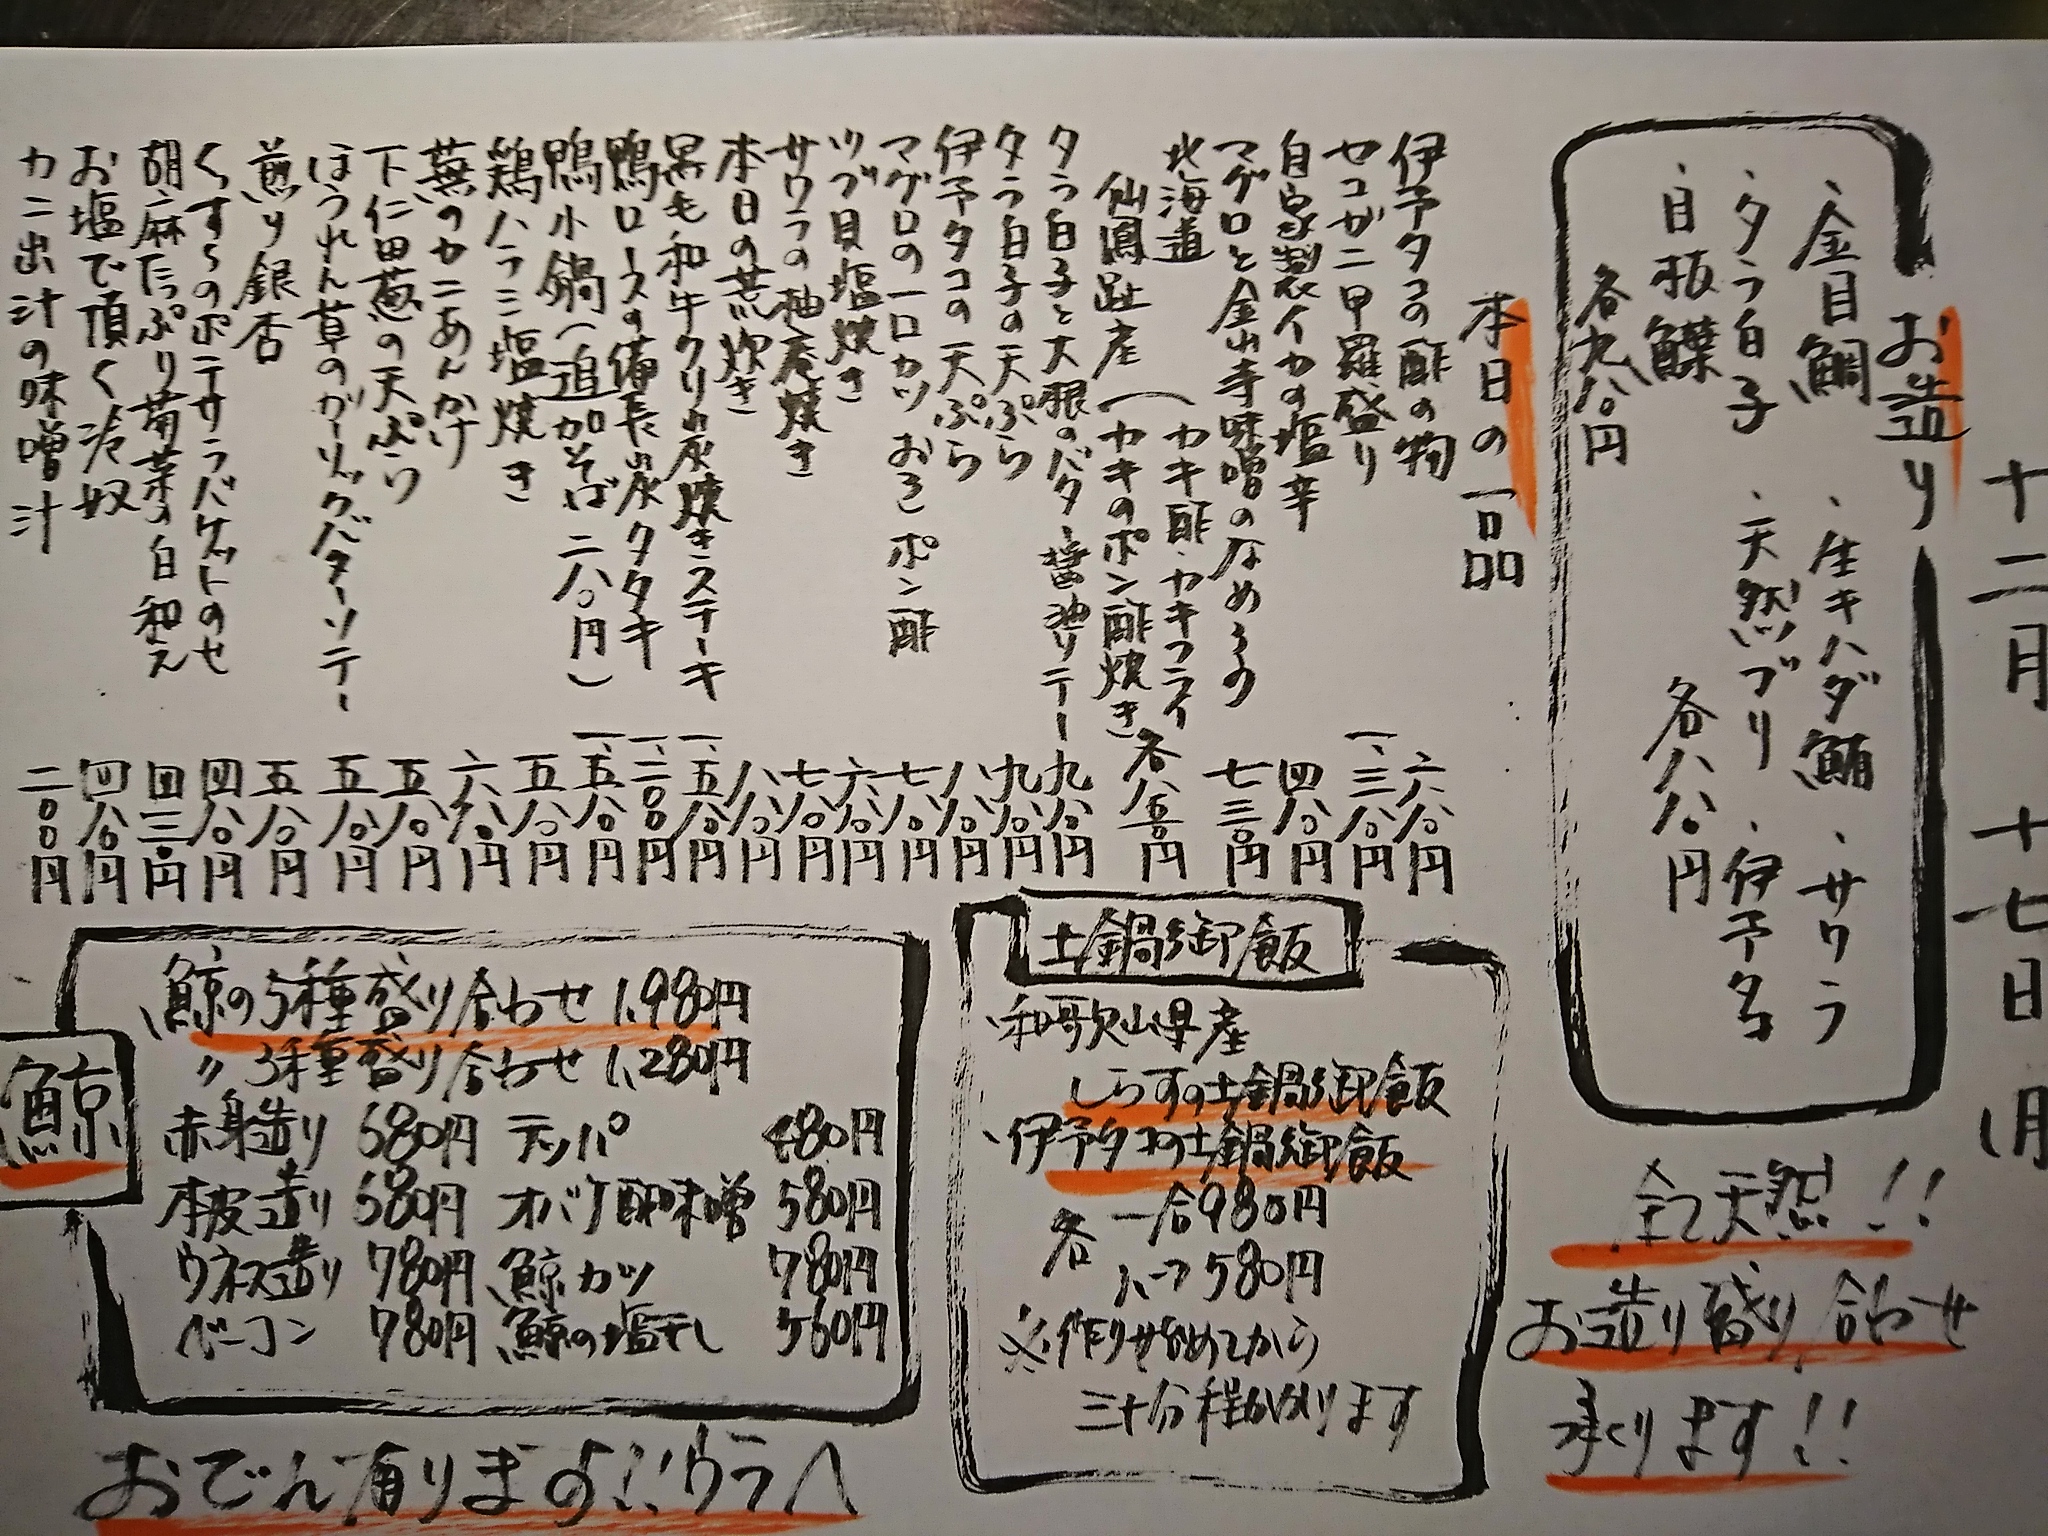 十二月 十七日 (月)
お造り
・金目鯛 ・生キハダ鮪 ・サワラ
・タラ白子 ・天然ブリ ・伊予タコ
・目板鰈 各八八〇円
各九八〇円
全て天然!!
お造り盛り合わせ
承ります!!
本日の一品
伊予タコの酢の物 六八〇円
セコガニ甲羅盛り 一、三八〇円
自家製イカの塩辛 四八〇円
マグロと金山寺味噌のなめろう 七三〇円
北海道
仙鳳趾産 (カキ酢・カキフライ
(カキのポン酢焼き 各八五〇円
タラ白子と大根のバター醤油ソテー 九八〇円
タラ白子の天ぷら 九八〇円
伊予タコの天ぷら 八八〇円
マグロの一口カツ おろしポン酢 七八〇円
ツブ貝塩焼き 六八〇円
サワラの柚庵焼き 七八〇円
本日の荒炊き 八八〇円
黒毛和牛クリの炭焼きステーキ 一、五八〇円
鴨ロースの備長炭タタキ 一、二〇〇円
鴨小鍋(追加そば 二八〇円) 一、五八〇円
鶏ハラミ塩焼き 五八〇円
蕪のカニあんかけ 六八〇円
下仁田葱の天ぷら 五八〇円
ほうれん草のガーリックバターソテー 五八〇円
煎り銀杏 五八〇円
くずしポテサラバケットのせ 四八〇円
胡麻たっぷり菊菜の白和え 四三〇円
お塩で頂く冷奴 四八〇円
カニ出汁の味噌汁 二〇〇円
土鍋御飯
・和歌山県産
しらすの土鍋御飯
・伊予タコの土鍋御飯
各 一合980円
ハーフ580円
※作り始めてから
三十分程かかります
鯨
鯨の5種盛り合わせ 1,980円
〃 3種盛り合わせ 1,280円
赤身造り 680円 テッパ 480円
本皮造り 580円 オバケ酢味噌 580円
ウネス造り 780円 鯨カツ 780円
ベーコン 780円 鯨の塩干し 560円
おでん有ります!!ウラへ